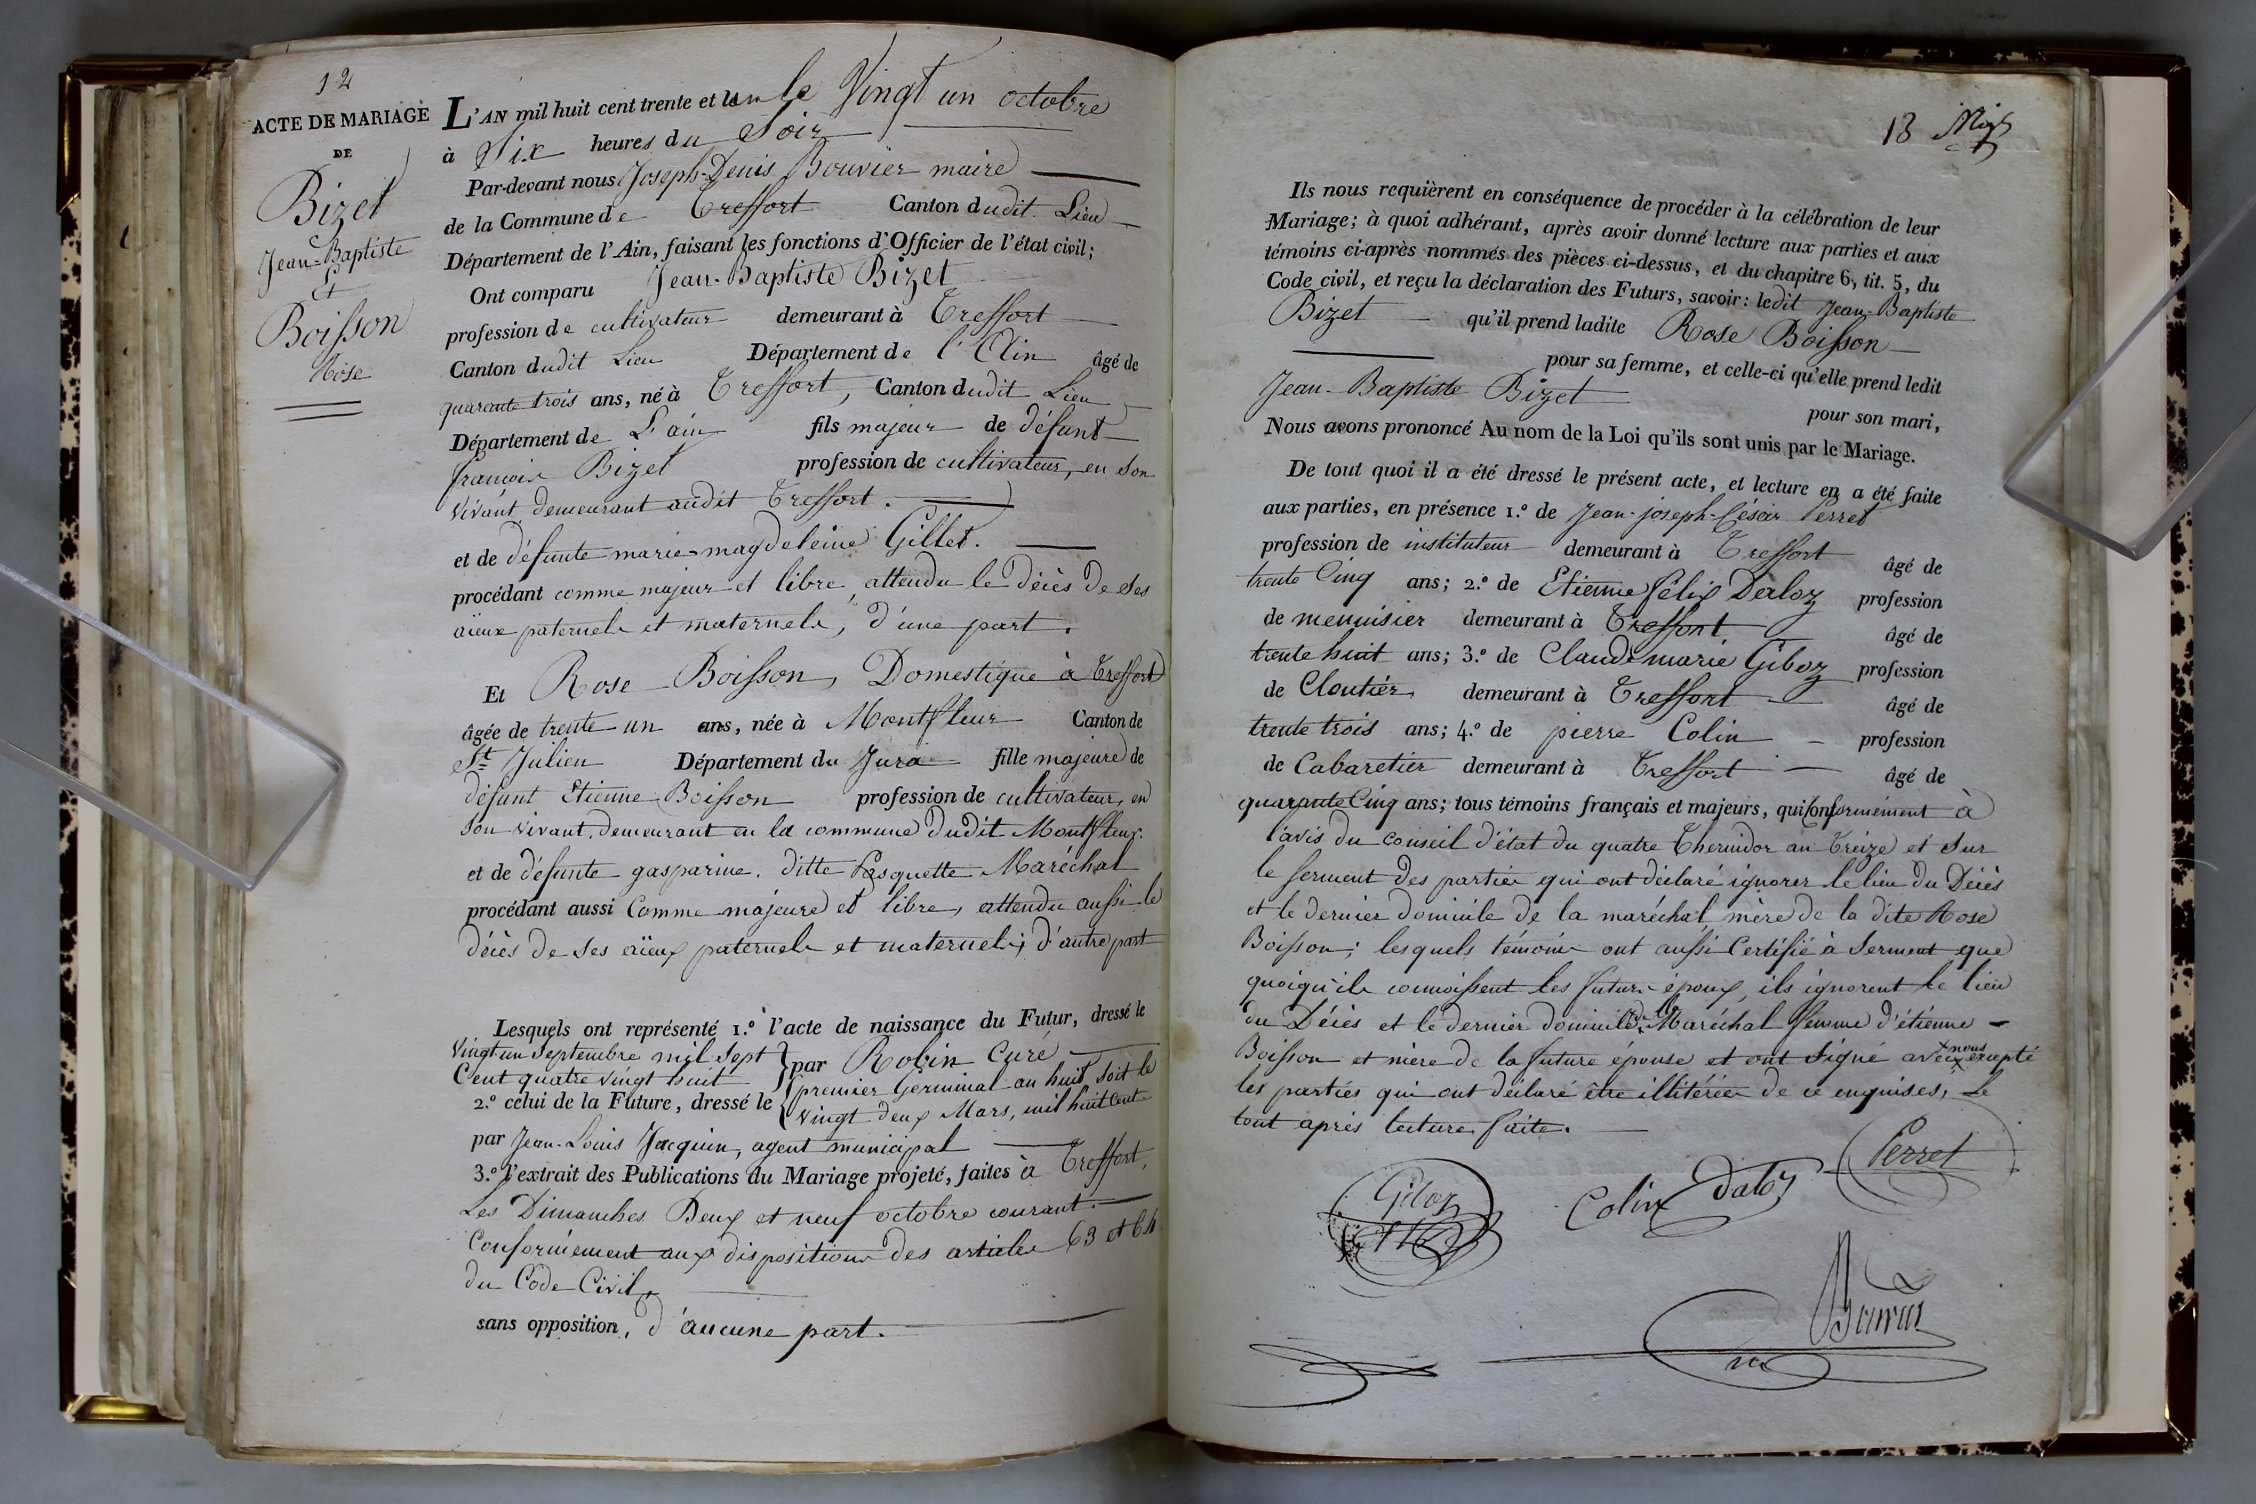 12
ACTE DE MARIAGE
DE
Bizet
Jean-Baptiste
Et
Boisson
Rose
L'AN mil huit cent trente et un le Vingt un octobre
à Six heures du Soir
Par-devant nous Joseph-Denis Bouvier maire
de la Commune de Treffort Canton dudit Lieu
Département de l'Ain, faisant les fonctions d'Officier de l'état civil;
Ont comparu Jean-Baptiste Bizet
profession de cultivateur demeurant à Treffort
Canton dudit Lieu Département de l'Ain âgé de
quarante trois ans, né à Treffort, Canton dudit Lieu
Département de L'ain fils majeur de défunt
françois Bizet profession de cultivateur, en son
vivant demeurant audit Treffort.
et de défunte marie-magdeleine Gillet.
procédant comme majeur et libre, attendu le décès de ses
aïeux paternels et maternels, d'une part.
Et Rose Boisson, Domestique à Treffort
âgée de trente un ans, née à Montfleur Canton de
St Julien Département du Jura fille majeure de
défunt Etienne Boisson profession de cultivateur, en
son vivant demeurant en la commune dudit Montfleur.
et de défunte gasparine. ditte Pasquette Maréchal
procédant aussi Comme majeure et libre, attendu aussi le
décès de ses aïeux paternels et maternels; d'autre part
Lesquels ont représenté 1.º l'acte de naissance du Futur, dressé le
vingt un septembre mil sept par Robin Curé
Cent quatre vingt huit
2.º celui de la Future, dressé le premier Germinal an huit soit le
vingt deux Mars, mil huit Cent
par Jean-Louis Jacquin, agent municipal
3.º l'extrait des Publications du Mariage projeté, faites à Treffort,
Les Dimanches Deux et neuf octobre courant.
Conformément aux dispositions des articles 63 et 64
du Code Civil,
sans opposition, d'aucune part.
13
Ils nous requièrent en conséquence de procéder à la célébration de leur
Mariage; à quoi adhérant, après avoir donné lecture aux parties et aux
témoins ci-après nommés des pièces ci-dessus, et du chapitre 6, tit. 5, du
Code civil, et reçu la déclaration des Futurs, savoir: ledit Jean-Baptiste
Bizet qu'il prend ladite Rose Boisson
pour sa femme, et celle-ci qu'elle prend ledit
Jean-Baptiste Bizet
pour son mari,
Nous avons prononcé Au nom de la Loi qu'ils sont unis par le Mariage.
De tout quoi il a été dressé le présent acte, et lecture en a été faite
aux parties, en présence 1.º de Jean-joseph-César Perret
profession de instituteur demeurant à Treffort âgé de
trente Cinq ans; 2.º de Etienne félix Daloz profession
de menuisier demeurant à Treffort âgé de
trente huit ans; 3.º de Claude marie Giboz profession
de Cloutier demeurant à Treffort âgé de
trente trois ans; 4.º de pierre Colin profession
de Cabaretier demeurant à Treffort âgé de
quarante Cinq ans; tous témoins français et majeurs, qui Conformément à
l'avis du Conseil d'état du quatre thermidor an treize et sur
le serment des parties qui ont déclaré ignorer le lieu du Décès
et le dernier domicile de la maréchal, mère de la dite Rose
Boisson; lesquels témoins ont aussi Certifié à Serment que
quoiqu'ils connoissent les futurs époux, ils ignorent le lieu
du Décès et le dernier domicile de la Maréchal femme d'étienne
Boisson et mère de la future épouse et ont signé avec nous excepté
les parties qui ont déclaré être illitérées de ce enquises, Le
tout après lecture faite.
Giboz
Colin
Daloz
Perret
Bouvier